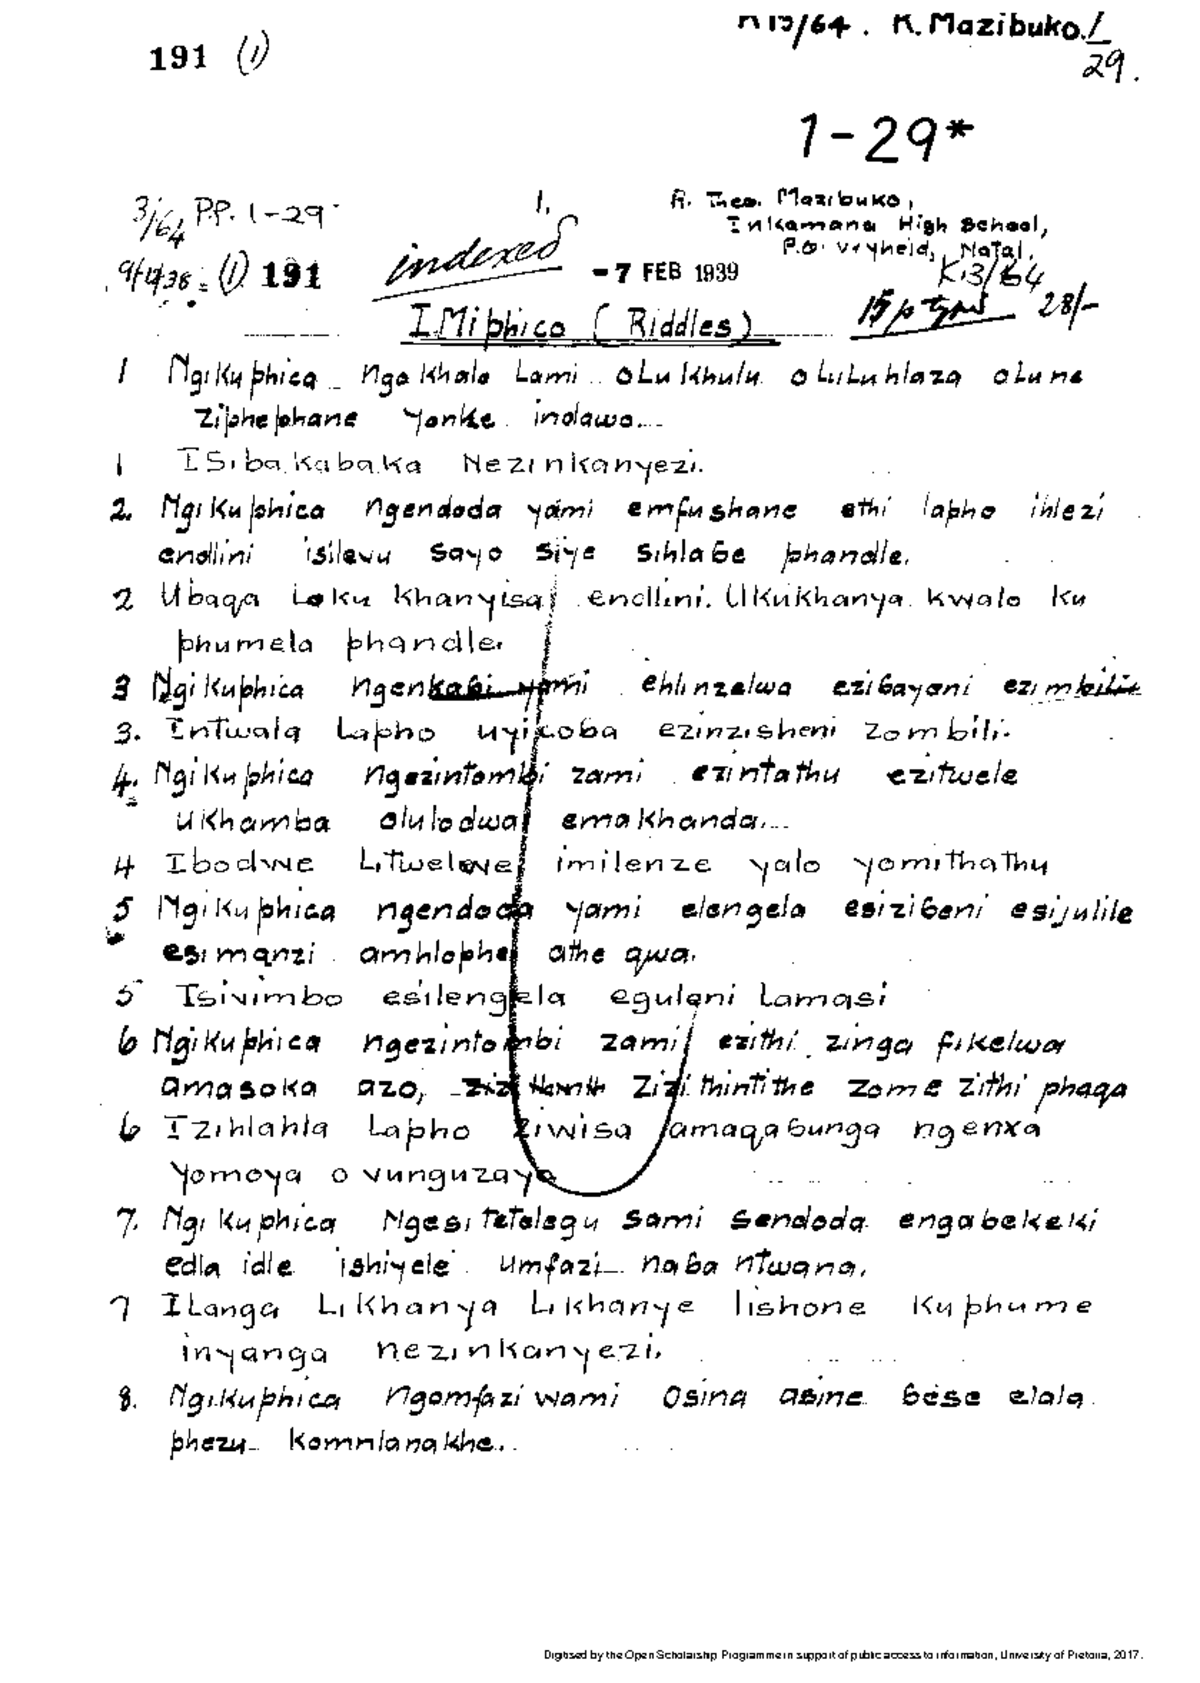 K13/64. K. Mazibuko. 1/
29.
191 (1)
1-29*
3/64 P.P. 1-29
1.
A. Theo. Mazibuko,
Inkamana High School,
P.O. Vryheid, Natal.
9/11/38 = (1) 191
indexed
-7 FEB 1939
K13/64
15 p typed 28/-
IMiphico (Riddles)
1 Ngikuphica ngokhalo lami olukhulu oluluhlaza olune
ziphephane yonke indawo...
1 ISibakabaka Nezinkanyezi.
2. Ngikuphica ngendoda yami emfushane ethi lapho ihlezi
endlini isilevu sayo siye sihlabe phandle.
2 Ubaqa loku khanyisa endlini. Ukukhanya kwalo ku
phumela phandle.
3 Ngikuphica ngenkabi yami ehlinzelwa ezibayani ezimbili
3. Intwala lapho uyicoba ezinzisheni zombili.
4. Ngikuphica ngezintombi zami ezintathu ezitwele
ukhamba olulodwa emakhanda...
4 Ibodwe Litweleye imilenze yalo yomithathu
5 Ngikuphica ngendoda yami elengela esizibeni esijulile
esimanzi amhlophe athe qwa.
5 Isivimbo esilengela egulani lamasi
6 Ngikuphica ngezintombi zami ezithi zinga fikelwa
amasoka azo, zizithintithe zome zithi phaqa
6 Izihlahla lapho ziwisa amaqabunga ngenxa
yomoya o vunguzayo
7. Ngikuphica Ngesitetelegu sami sendoda engabekeki
edla idle ishiyele umfazi naba ntwana.
7 ILanga Likhanya Likhanye lishone kuphume
inyanga nezinkanyezi.
8. Ngikuphica ngomfazi wami osina asine bese elala
phezu komhlanakhe..
Digitised by the Open Scholarship Programme in support of public access to information, University of Pretoria, 2017.